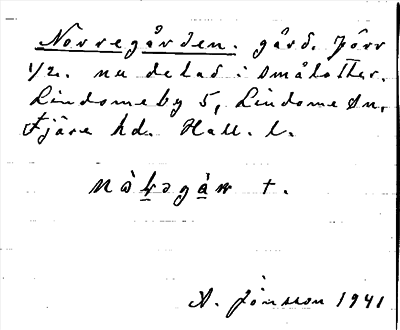 Norregården. gård. förr
1/2. nu delad i smålotter.
Lindome by 5, Lindome sn,
Fjäre hd. Hall. l.
nò̀rəgàɴ t.
A. Jönsson 1941